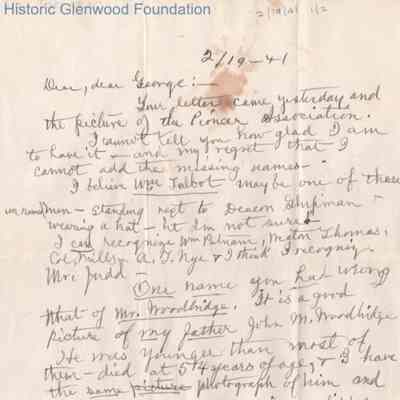 Historic Glenwood Foundation
2/19/41 1/2
2/19-41
Dear, dear George:-
Your letter came yesterday and
the picture of the Pioneer Association.
I cannot tell you how glad I am
to have it - and my regret that I
cannot add the missing names-
I believe Wm Talbot may be one of those
men - standing next to Deacon Shipman -
wearing a hat - but I'm not sure.
I can recognize Wm Putnam, Thomas,
Col. Mills - A. T. Nye & I think I recognize
Mr. Judd -
One name you had wrong
that of Mr. Woodbridge. It is a good
picture of my father John M. Woodbridge
He was younger than most of
them - died at 54 years of age, & I have
the same picture photograph of him and